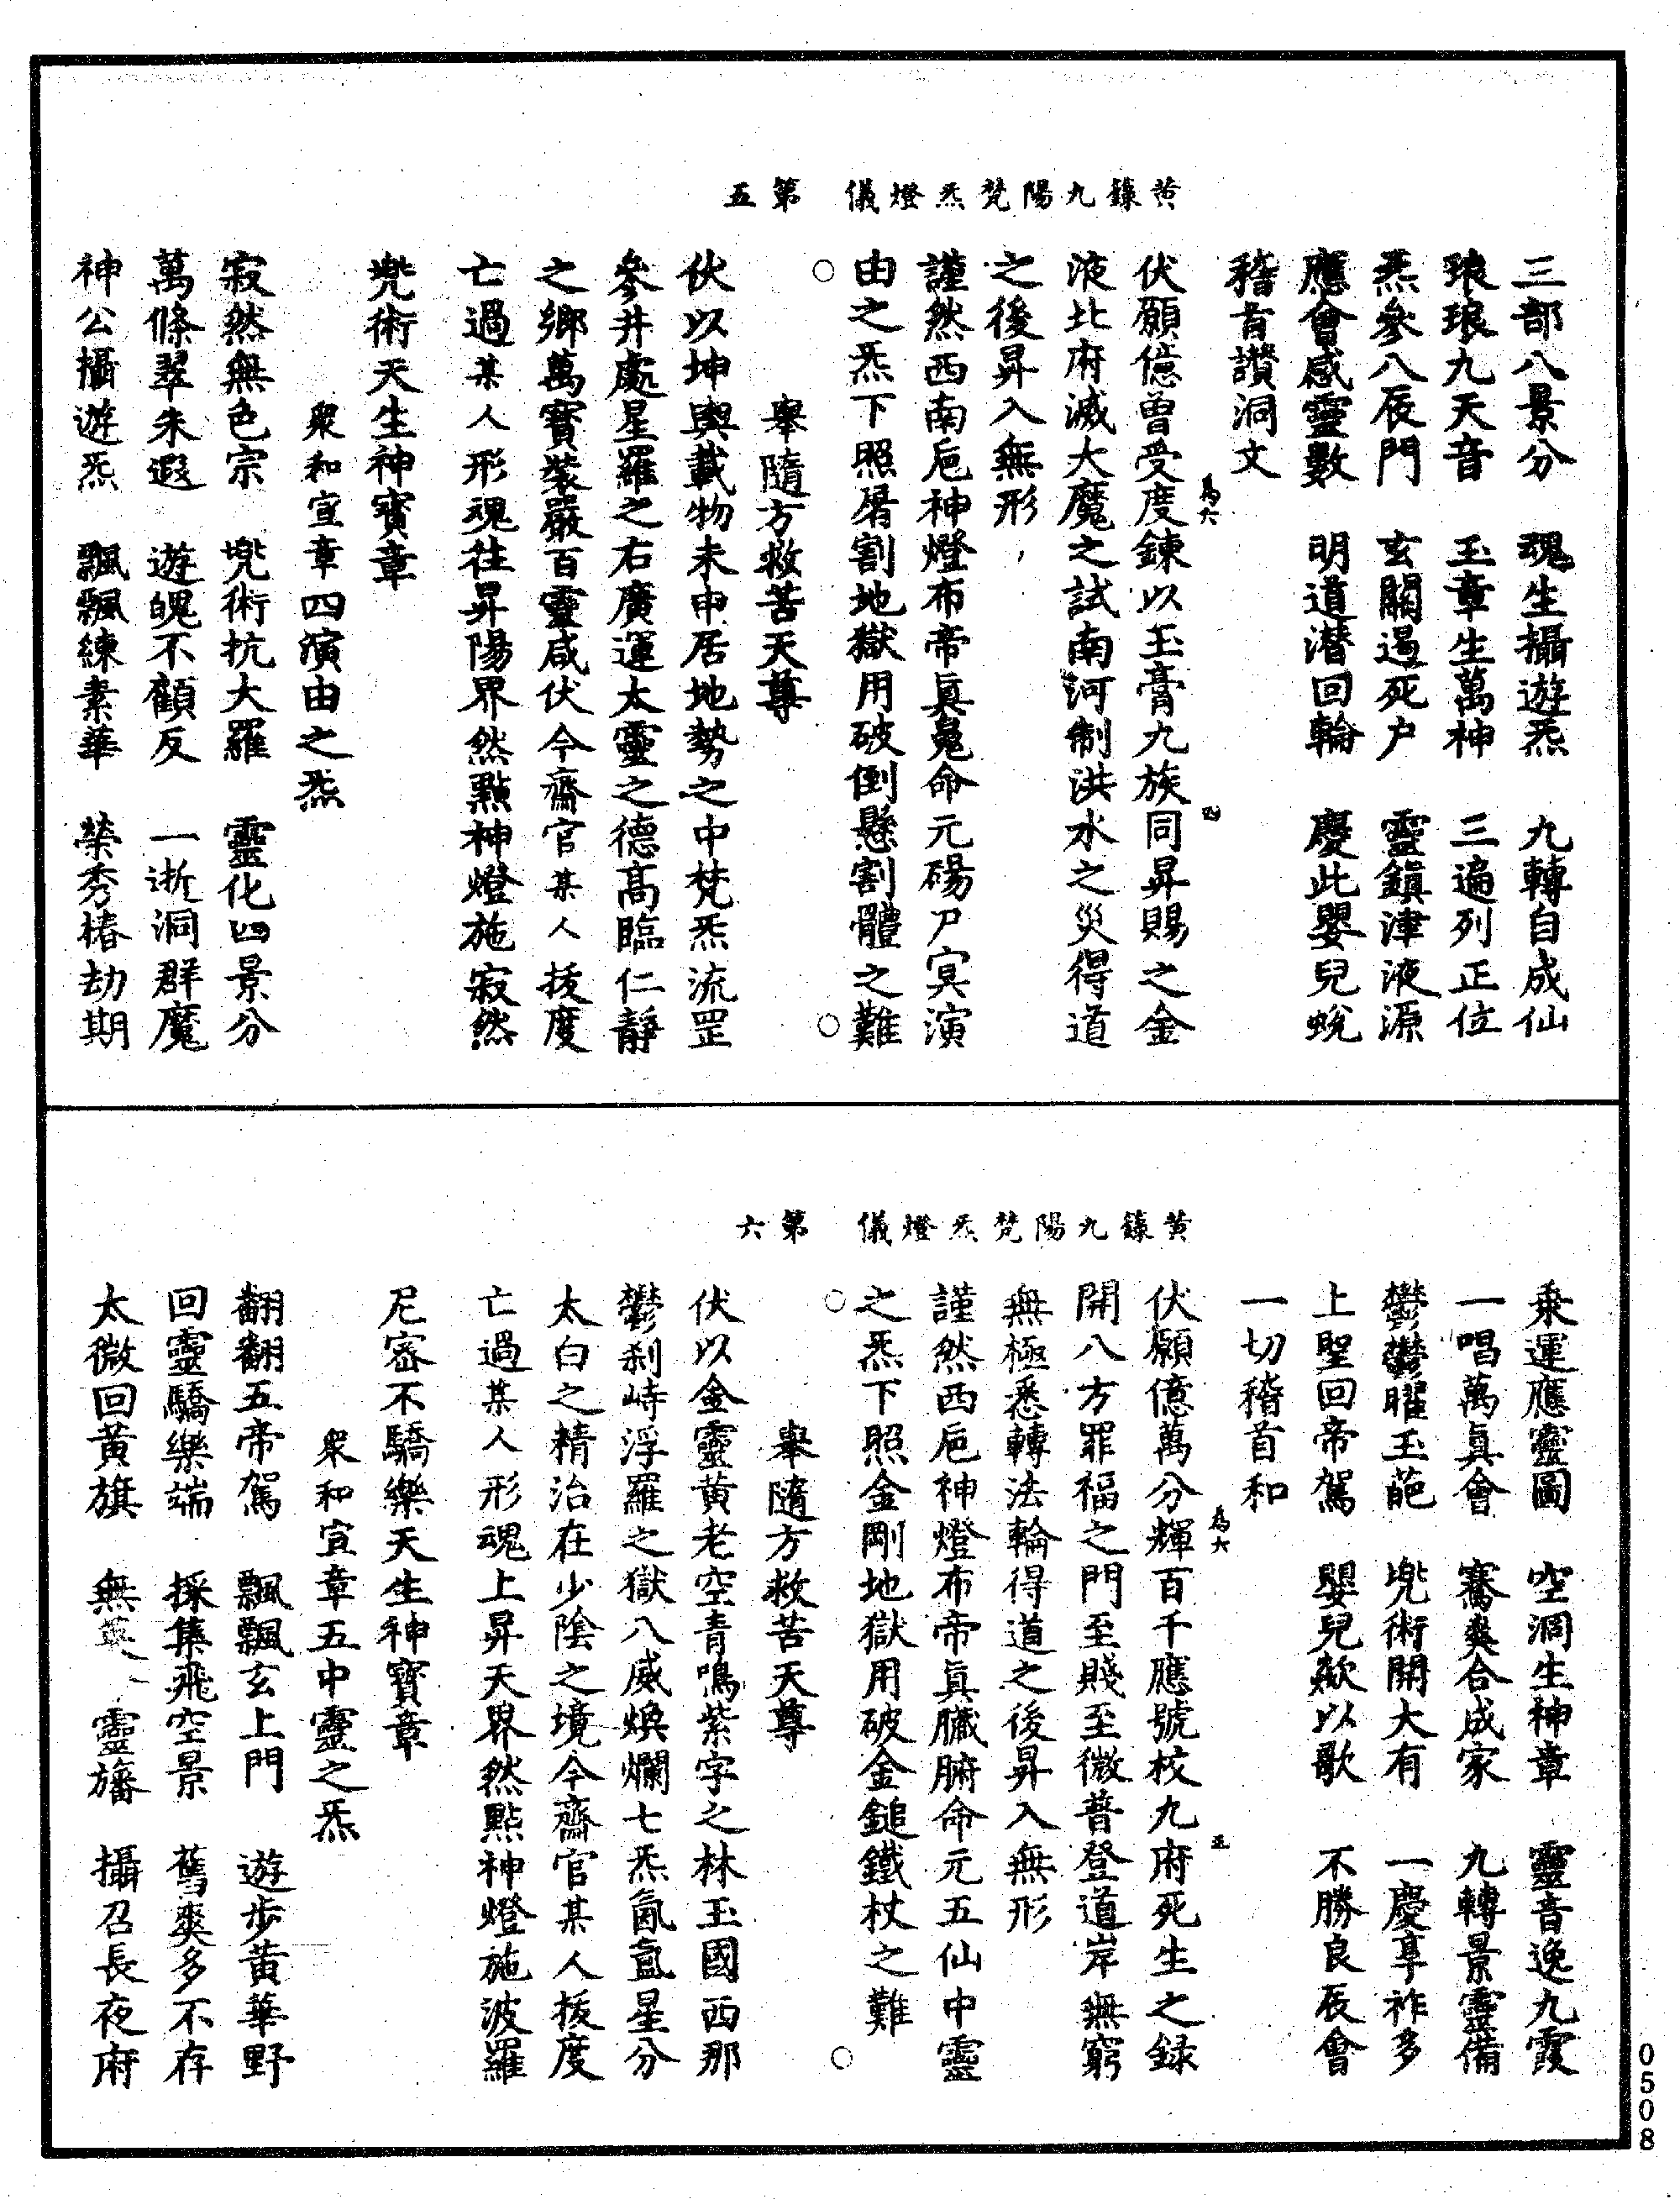 黃籙九陽梵炁燈儀　第五
三部八景分　魂生攝遊炁　九轉自成仙
琅琅九天音　玉章生萬神　三遍列正位
炁參八辰門　玄關遏死戶　靈鎮津液源
應會感靈數　明道潛回輪　慶此嬰兒蛻
稽首讚洞文
伏願億曾受度鍊以玉膏九族同昇賜之金
液北府滅大魔之試南河制洪水之災得道
之後昇入無形
謹然西南扈神燈布帝真臱命元碭尸冥演
由之炁下照屠割地獄用破倒懸割體之難
舉隨方救苦天尊
伏以坤輿載物未申居地勢之中梵炁流罡
參井處星羅之右廣運太靈之德高臨仁靜
之鄉萬寶裝嚴百靈咸伏今齋官某人拔度
亡過某人形魂往昇陽界然點神燈施寂然
兜術天生神寶章
眾和宣章四演由之炁
寂然無色宗　兜術抗大羅　靈化四景分
萬條翠朱遐　遊魄不顧反　一逝洞群魔
神公攝遊炁　飄飄練素華　榮秀椿劫期
黃籙九陽梵炁燈儀　第六
乘運應靈圖　空洞生神章　靈音逸九霞
一唱萬真會　騫爽合成家　九轉景靈備
鬱鬱曜玉葩　兜術開大有　一慶享祚多
上聖回帝駕　嬰兒欻以歌　不勝良辰會
一切稽首和
伏願億萬分輝百千應號校九府死生之錄
開八方罪福之門至賤至微普登道岸無窮
無極悉轉法輪得道之後昇入無形
謹然西扈神燈布帝真臟腑命元五仙中靈
之炁下照金剛地獄用破金鎚鐵杖之難
舉隨方救苦天尊
伏以金靈黃老空青鳴紫字之林玉國西那
鬱剎峙浮羅之獄八威煥爛七炁氤氳星分
太白之精治在少陰之境今齋官某人拔度
亡過某人形魂上昇天界然點神燈施波羅
尼密不驕樂天生神寶章
眾和宣章五中靈之炁
翻翻五帝駕　飄飄玄上門　遊步黃華野
回靈驕樂端　採集飛空景　舊爽多不存
太微回黃旗　無英　靈旛　攝召長夜府
為六
四
為六
五
0508